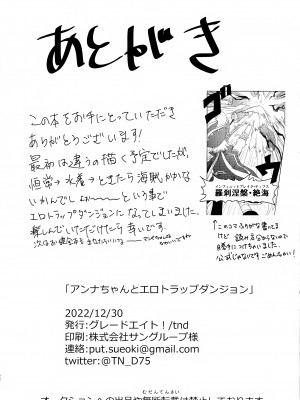 あとがき
この本をお手にとっていただき
ありがとうございます!
最初は違うの描く予定でしたが、
恒常→水着→ときたら海賊かかない
いかんでしょ〜という事で
エロトラップダンジョンになってしまいました。
楽しんでいただけたら幸いです。
インフィニットブレイクサックス
羅刹涅槃・絶海
↑このコマふりがな書ってる
けど 読み方分からないので
勝手につけちゃいました。
公式じゃないですごめんなさい!
「アンナちゃんとエロトラップダンジョン」
2022/12/30
発行:グレードエイト!/tnd
印刷:株式会社サングループ様
連絡:put.sueoki@gmail.com
twitter:@TN_D75
むだんてんさい
オークションへの出品や無断転載は禁止しております